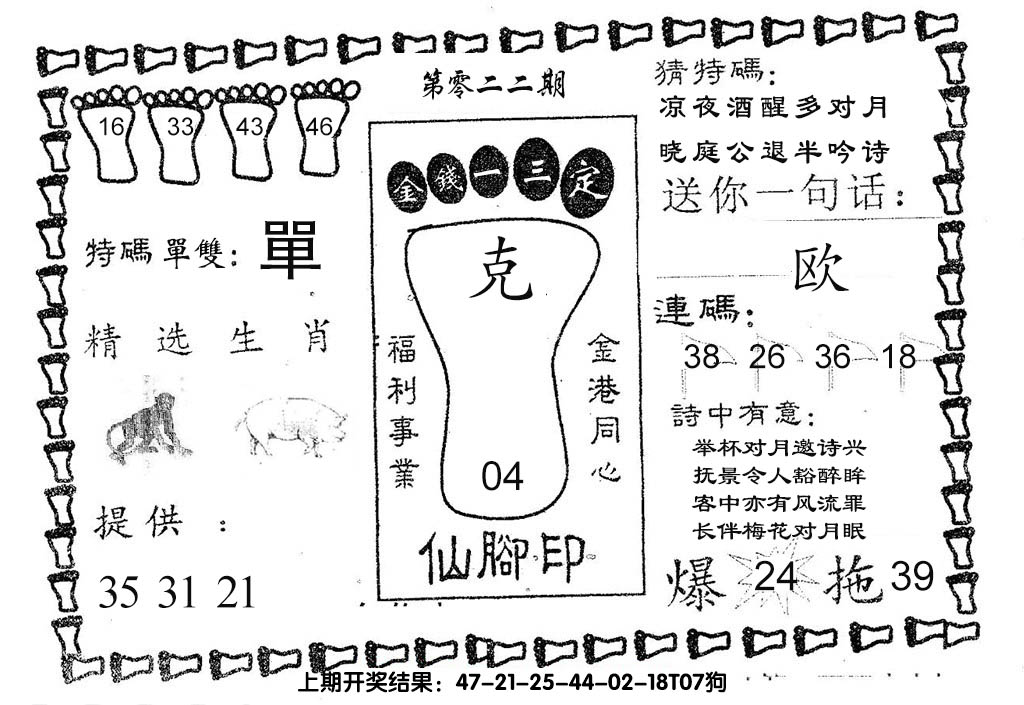 第零二二期
16 33 43 46
特碼單雙: 單
精选生肖
提供:
35 31 21
金錢一三定
克
福利事業
金港同心
04
仙腳印
猜特碼:
凉夜酒醒多对月
晓庭公退半吟诗
送你一句话:
欧
連碼:
38 26 36 18
詩中有意:
举杯对月邀诗兴
抚景令人豁醉眸
客中亦有风流罪
长伴梅花对月眠
爆 24 拖 39
上期开奖结果：47-21-25-44-02-18T07狗